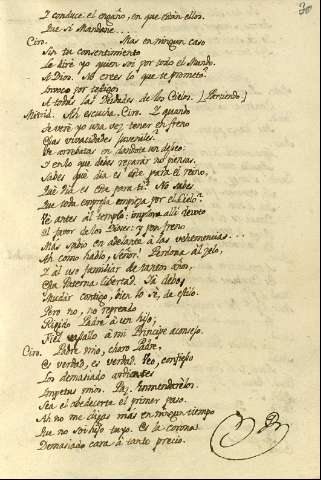 Y conduce el engaño, en que están ellos.
Que si Mandane...
Ciro. Mas en ningun caso
Sin tu consentimiento
La diré yo quien soi por todo el Mundo.
A Dios. No crees lo que te prometo?
Invoco por testigos
A todas las Deidades de los Cielos. (Partiendo)
Mitrid. Ah escucha, Ciro. Y quando
Se veré yo una vez tener en freno
Esas vivacidades juveniles?
Te arrebatas en dandote un deseo:
Y en lo que dejas reparár no piensas.
Sabes qué dia es este para el reino,
Qué dia es este para ti? No sabes
Que toda empresa empieza por el Cielo?
Ve antes al templo: implora alli devoto
El favor de los Dioses: y pon freno
Mas sabio en adelante à las vehemencias...
Ah como hablo, Señor! Perdona al zelo,
Y al uso familiar de tantos años,
Esta Paterna libertad. Ya debo
Mudar contigo, bien lo sé, de estilo.
Pero no, no reprendo
Rigido Padre à un hijo;
Fiel vasallo à mi Principe aconsejo.
Ciro. Padre mio, charo Padre,
Es verdad, es verdad. Veo, confieso
Los demasiado ardientes
Impetus mios. Los enmendaré.
Sea el obedecerte el primer paso.
Ah no me digas más en ningun tiempo
Que no soi hijo tuyo. Es la corona
Demasiado cara à tanto precio.